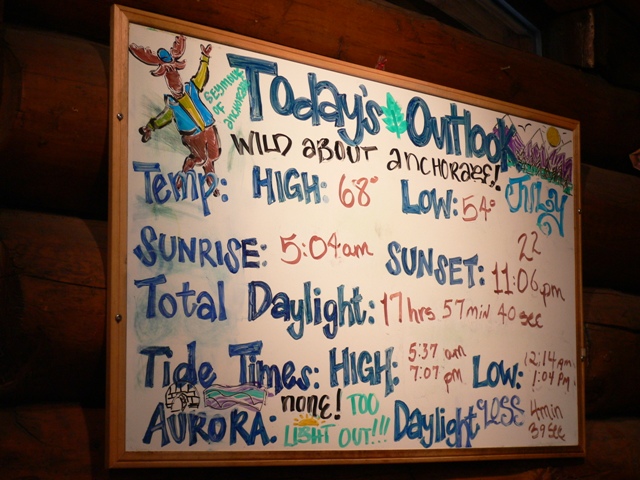 SEYMOUR OF ANCHORAGE
Today's Outlook
WILD ABOUT ANCHORAGE!
JULY 22
Temp: HIGH: 68° LOW: 54°
SUNRISE: 5:04 am SUNSET: 11:06 pm
Total Daylight: 17 hrs 57 min 40 sec
Tide Times: HIGH: 5:37 am 7:07 pm LOW: 12:14 am 1:04 PM
AURORA: none! TOO LIGHT OUT!!! Daylight LOSS 4min 39 sec